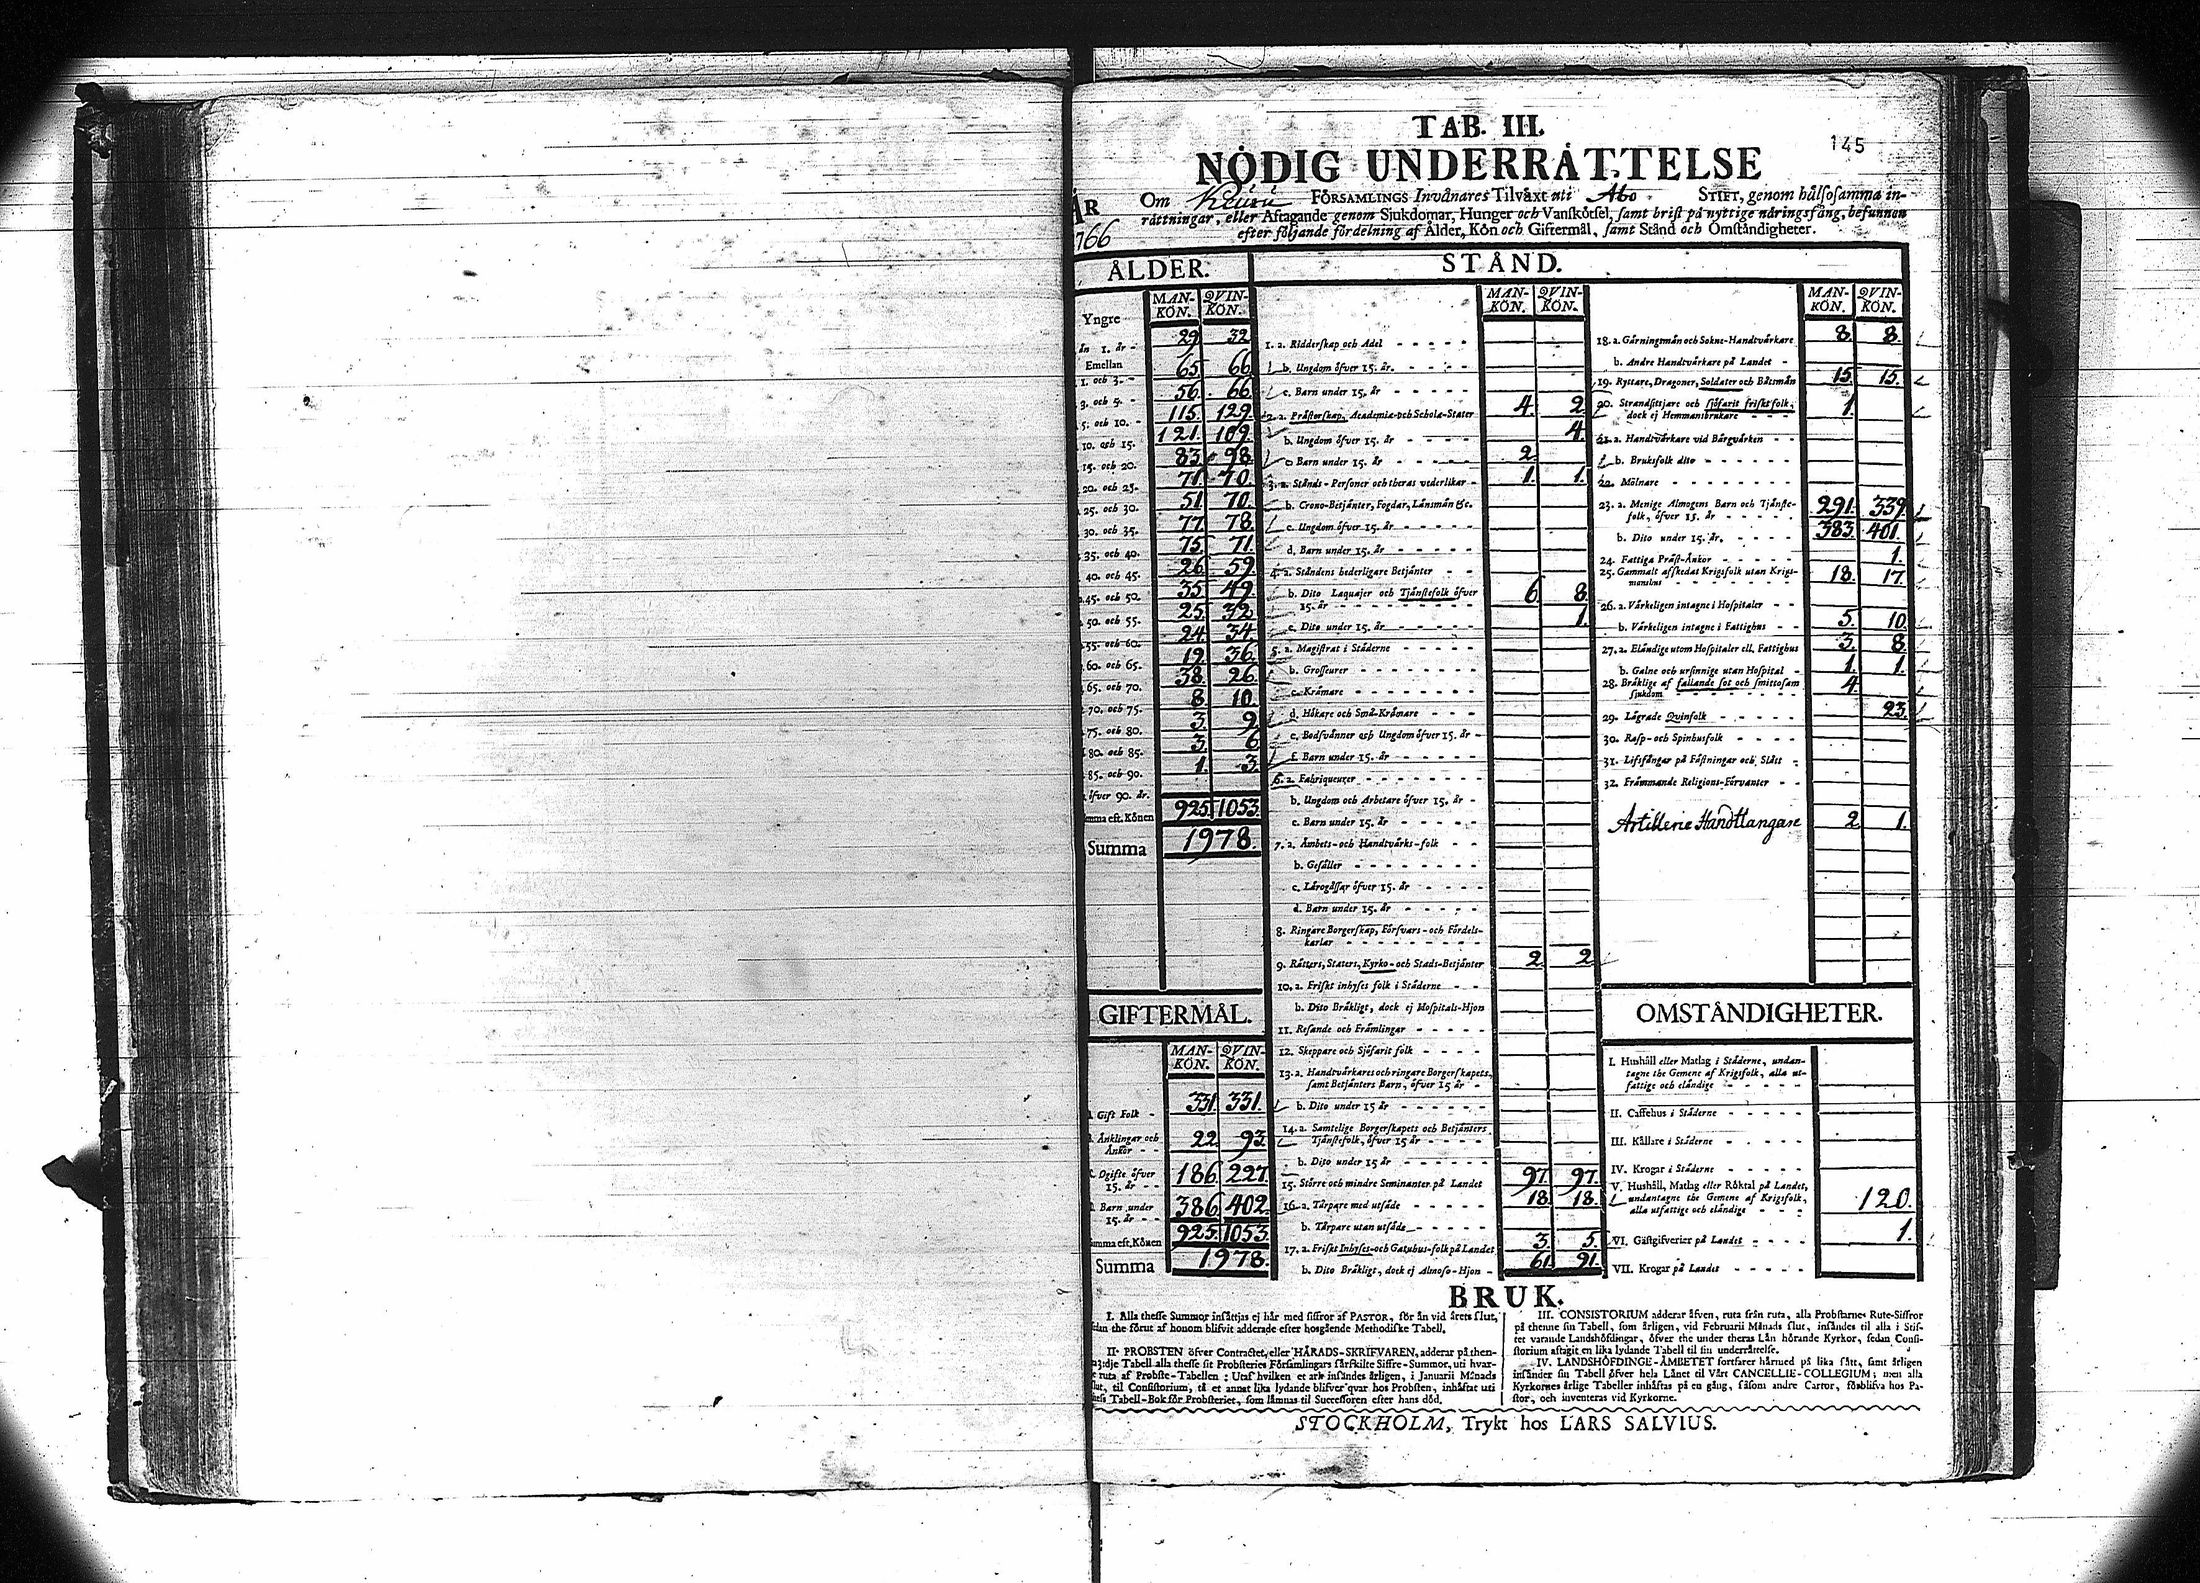 TAB. III.
145
NÖDIG UNDERRÅTTELSE
ÅR
766
Om Keuru FÖRSAMLINGS Invånares Tilvåxt uti Åbo STIFT, genom hålsosamma in-
råttningar, eller Aftagande genom Sjukdomar, Hunger och Vanskötsel, samt brist på nyttige näringsfång, befunnen
efter följande fördelning af Ålder, Kön och Giftermål, samt Stånd och Omståndigheter.
ÅLDER.
MAN-KÖN. QVIN-KÖN.
Yngre
än 1. år - 29 32
Emellan
1. och 3. - 65 66
3. och 5. - 56 66
5. och 10. - 115 129
10. och 15. 121 109
15. och 20. 83 98
20. och 25. 71 70
25. och 30. 51 70
30. och 35. 77 78
35. och 40. 75 71
40. och 45. 26 59
45. och 50. 35 49
50. och 55. 25 32
55. och 60. 24 34
60. och 65. 19 36
65. och 70. 38 26
70. och 75. 8 10
75. och 80. 3 9
80. och 85. 3 6
85. och 90. 1 3
öfver 90. år.
mma eft. Könen 925 1053
Summa 1978.
GIFTERMÅL.
MAN-KÖN. QVIN-KÖN.
Gift Folk - 331 331
Änklingar och
Änkor - - 22 93
Ogifte öfver
15. år - - 186 227
Barn under
15. år - - 386 402
mma eft. Könen 925 1053
Summa 1978.
STÅND.
MAN-KÖN. QVIN-KÖN.
1. a. Ridderskap och Adel
b. Ungdom öfver 15. år.
c. Barn under 15. år
2. a. Prästerskap, Academiæ-och Scholæ-Stater 4 2
b. Ungdom öfver 15. år 4
c Barn under 15. år 2
3. a. Stånds-Personer och theras vederlikar 1 1
b. Crono-Betjänter, Fogdar, Länsmän &c.
c. Ungdom öfver 15. år
d. Barn under 15. år
4. a. Ståndens hederligare Betjänter
b. Dito Laquajer och Tjänstefolk öfver
15. år 6 8
c. Dito under 15. år 1
5. a. Magistrat i Städerne
b. Grosseurer
c. Krämare
d. Hökare och Små-Krämare
e. Bodsvänner och Ungdom öfver 15. år
f. Barn under 15. år
6. a. Fabriqueurer
b. Ungdom och Arbetare öfver 15. år
c. Barn under 15. år
7. a. Ämbets-och Handtvärks-folk
b. Gesäller
c. Lärogåssar öfver 15. år
d. Barn under 15. år
8. Ringare Borgerskap, Försvars-och Fördels-
karlar
9. Rätters, Staters, Kyrko-och Stads-Betjänter 2 2
10. a. Friskt inhyses folk i Städerne
b. Dito Bräkligt, dock ej Hospitals-Hjon
11. Resande och Främlingar
12. Skeppare och Sjöfarit folk
13. a. Handtvärkares och ringare Borgerskapets,
samt Betjänters Barn, öfver 15 år
b. Dito under 15 år
14. a. Samtelige Borgerskapets och Betjänters
Tjänstefolk, öfver 15 år
b. Dito under 15 år
15. Större och mindre Seminanter på Landet 97 97
16. a. Tårpare med utsäde 18 18
b. Tårpare utan utsäde
17. a. Friskt Inhyses-och Gatuhus-folk på Landet 3 5
b. Dito Bräkligt, dock ej Almoso-Hjon 61 91
MAN-KÖN. QVIN-KÖN.
18. a. Gärningsmän och Sokne-Handtvärkare 8 8
b. Andre Handtvärkare på Landet
19. Ryttare, Dragoner, Soldater och Båtsmän 15 15
20. Strandsittjare och sjöfarit friskt folk,
dock ej Hemmansbrukare 1
21. a. Handtvärkare vid Bärgvärken
b. Bruksfolk dito
22. Mölnare
23. a. Menige Almogens Barn och Tjänste-
folk, öfver 15. år 291 339
b. Dito under 15. år. 383 401
24. Fattiga Präst-Änkor 1
25. Gammalt afskedat Krigsfolk utan Krigs-
mansbus 18 17
26. a. Värkeligen intagne i Hospitaler
b. Värkeligen intagne i Fattighus 5 10
27. a. Eländige utom Hospitaler ell. Fattighus 3 8
b. Galne och ursinnige utan Hospital 1 1
28. Bräklige af fallande sot och smittosam
sjukdom 4
29. Lägrade Qvinfolk 23
30. Rasp-och Spinhusfolk
31. Lifsfångar på Fästningar och Slått
32. Främmande Religions-Förvanter
Artillerie Handtlangare 2 1
OMSTÅNDIGHETER.
I. Hushåll eller Matlag i Städerne, undan-
tagne the Gemene af Krigsfolk, alla ut-
fattige och eländige
II. Caffehus i Städerne
III. Källare i Städerne
IV. Krogar i Städerne
V. Hushåll, Matlag eller Röktal på Landet,
undantagne the Gemene af Krigsfolk,
alla utfattige och eländige 120
VI. Gästgifverier på Landet 1
VII. Krogar på Landet
BRUK.
I. Alla thesse Summor insättjas ej här med siffror af PASTOR, för än vid årets slut,
edan the förut af honom blifvit adderade efter hosgående Methodiske Tabell.
II. PROBSTEN öfver Contractet, eller HÄRADS-SKRIFVAREN, adderar på then-
na 3:dje Tabell alla thesse sit Probsteries Församlingars särskilte Siffre-Summor, uti hvar-
e ruta af Probste-Tabellen: Utaf hvilken et ark insändes årligen, i Januarii Månads
slut, til Consistorium, tå et annat lika lydande blifver qvar hos Probsten, inhäftat uti
thess Tabell-Bok för Probsteriet, som lämnas til Successoren efter hans död.
III. CONSISTORIUM adderar äfven, ruta från ruta, alla Probstarnes Rute-Siffror
på thenne sin Tabell, som årligen, vid Februarii Månads slut, insändes til alla i Stif-
tet varande Landshöfdingar, öfver the under theras Län hörande Kyrkor, sedan Consi-
storium aftagit en lika lydande Tabell til sin underrättelse.
IV. LANDSHÖFDINGE-ÄMBETET fortfarer härmed på lika sätt, samt årligen
insänder sin Tabell öfver hela Länet til Vårt CANCELLIE-COLLEGIUM; men alla
Kyrkornes årlige Tabeller inhäftas på en gång, såsom andre Cartor, förblifva hos Pa-
stor, och inventeras vid Kyrkorne.
STOCKHOLM, Trykt hos LARS SALVIUS.